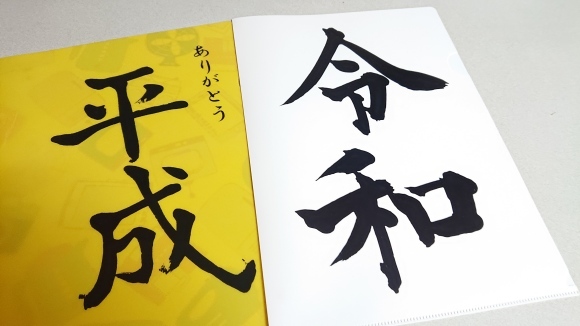 令和
ありがとう
平成